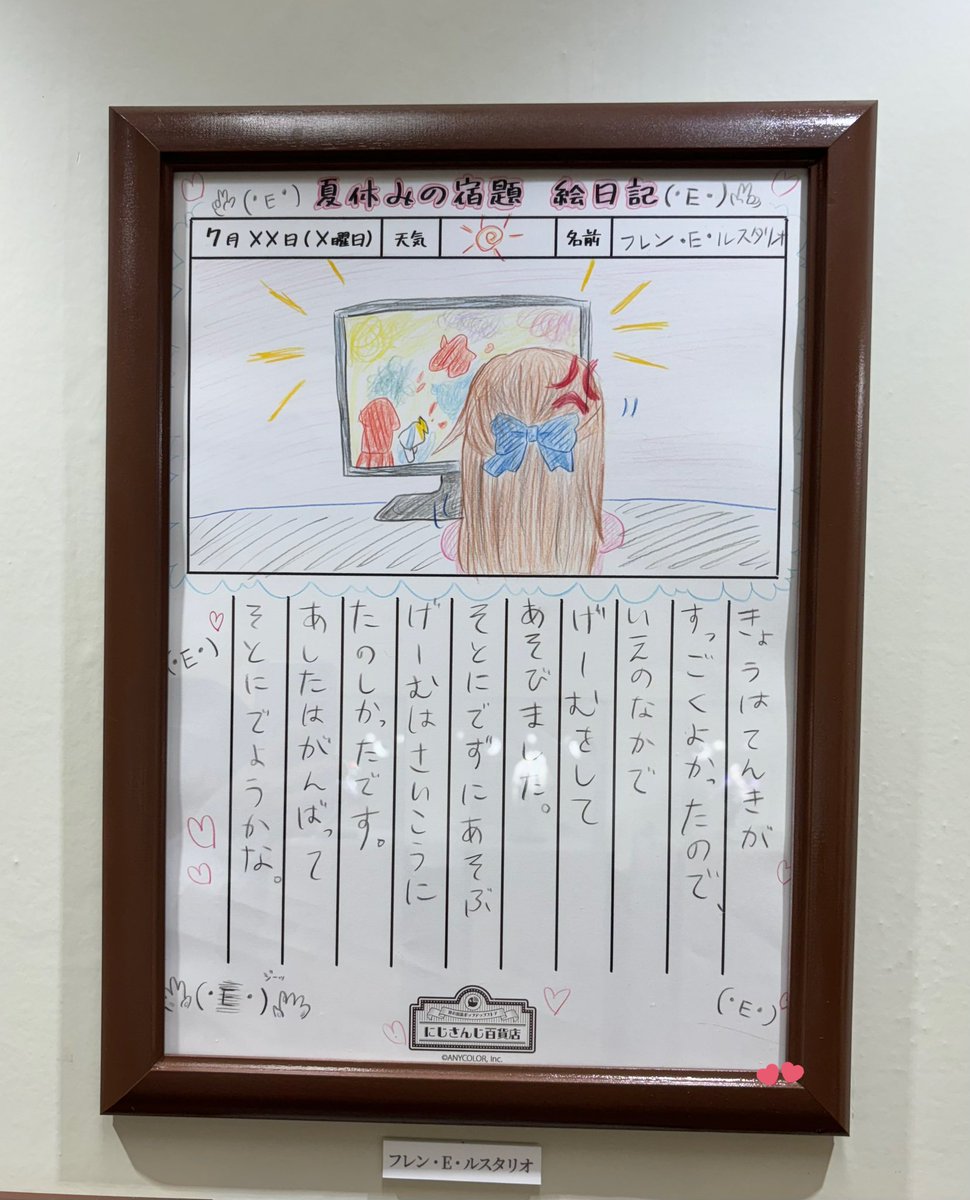 (・E・) 夏休みの宿題 絵日記 (・E・)
7月 XX日 (X曜日) 天気 名前 フレン・E・ルスタリオ
きょうはてんきが
すっごくよかったので、
いえのなかで
げーむをして
あそびました。
そとにでずにあそぶ
げーむはさいこうに
たのしかったです。
あしたはがんばって
そとにでようかな。
(・E・)
(・E・) ジーッ
(・E・)
にじさんじ百貨店
©ANYCOLOR, Inc.
フレン・E・ルスタリオ